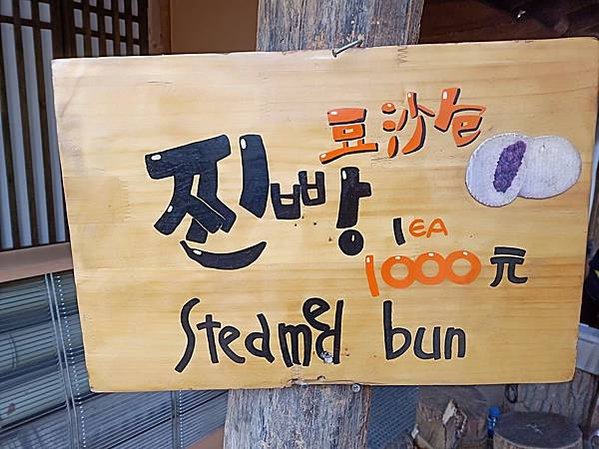 豆沙包
찐빵
1EA
1000元
Steamed bun